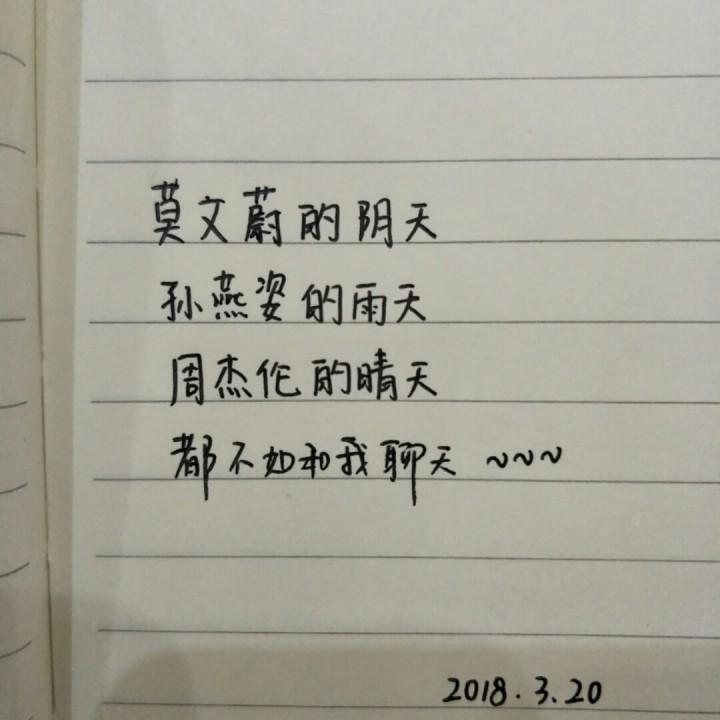 莫文蔚的阴天
孙燕姿的雨天
周杰伦的晴天
都不如和我聊天 ~~~
2018.3.20